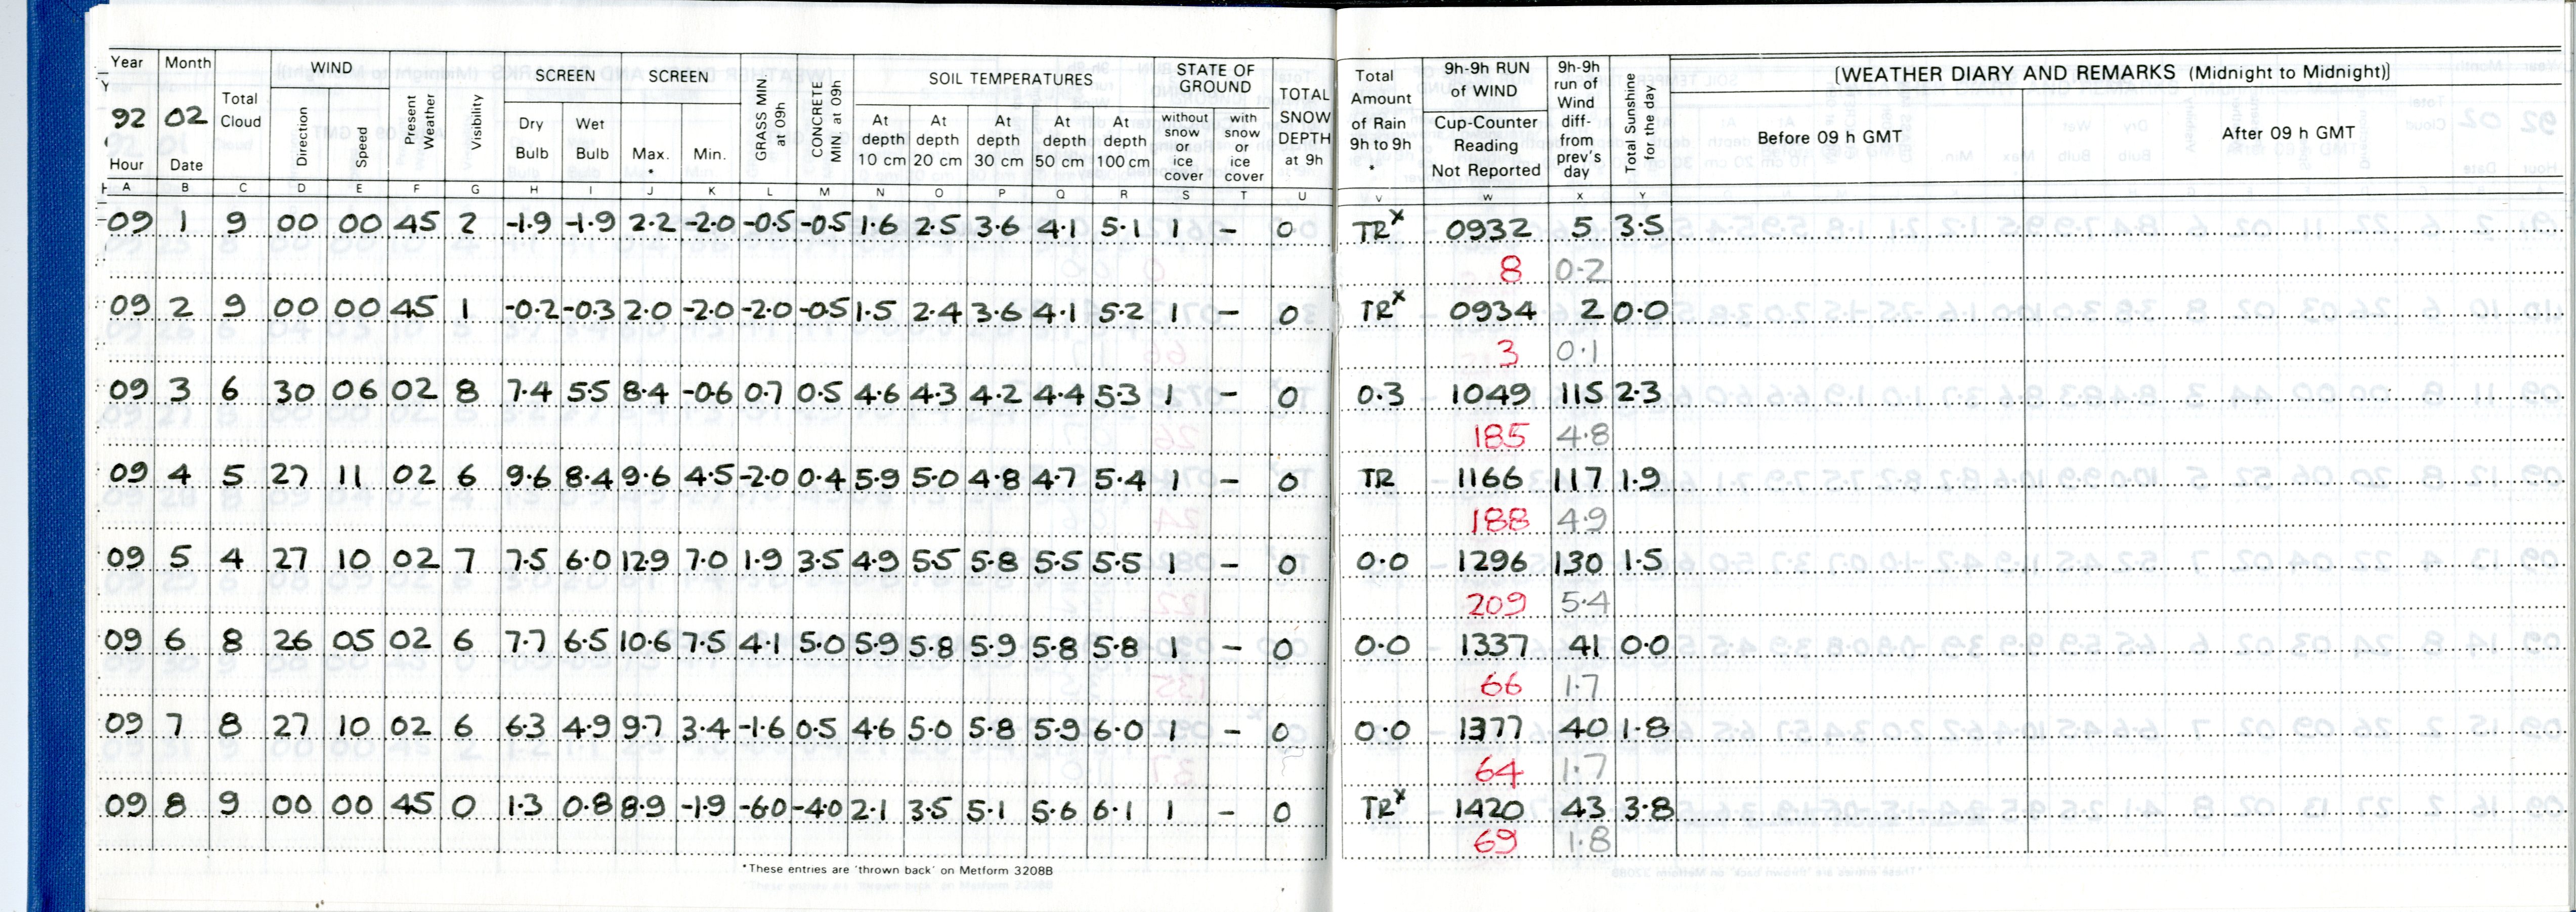 Year Month WIND SCREEN SCREEN SOIL TEMPERATURES STATE OF GROUND
92 02
Hour Date Total Cloud Direction Speed Present Weather Visibility Dry Bulb Wet Bulb Max. * Min. GRASS MIN at 09h CONCRETE MIN at 09h At depth 10 cm At depth 20 cm At depth 30 cm At depth 50 cm At depth 100 cm without snow or ice cover with snow or ice cover TOTAL SNOW DEPTH at 9h
Total Amount of Rain 9h to 9h * 9h-9h RUN of WIND Cup-Counter Reading Not Reported 9h-9h run of Wind diff- from prev's day Total Sunshine for the day
[WEATHER DIARY AND REMARKS (Midnight to Midnight)]
Before 09 h GMT After 09 h GMT
A B C D E F G H I J K L M N O P Q R S T U V W X Y
09 1 9 00 00 45 2 -1.9 -1.9 2.2 -2.0 -0.5 -0.5 1.6 2.5 3.6 4.1 5.1 1 - 0 TRx 0932 5 3.5
8 0.2
09 2 9 00 00 45 1 -0.2 -0.3 2.0 -2.0 -2.0 -0.5 1.5 2.4 3.6 4.1 5.2 1 - 0 TRx 0934 2 0.0
3 0.1
09 3 6 30 06 02 8 7.4 5.5 8.4 -0.6 0.7 0.5 4.6 4.3 4.2 4.4 5.3 1 - 0 0.3 1049 115 2.3
185 4.8
09 4 5 27 11 02 6 9.6 8.4 9.6 4.5 -2.0 0.4 5.9 5.0 4.8 4.7 5.4 1 - 0 TR 1166 117 1.9
188 4.9
09 5 4 27 10 02 7 7.5 6.0 12.9 7.0 1.9 3.5 4.9 5.5 5.8 5.5 5.5 1 - 0 0.0 1296 130 1.5
209 5.4
09 6 8 26 05 02 6 7.7 6.5 10.6 7.5 4.1 5.0 5.9 5.8 5.9 5.8 5.8 1 - 0 0.0 1337 41 0.0
66 1.7
09 7 8 27 10 02 6 6.3 4.9 9.7 3.4 -1.6 0.5 4.6 5.0 5.8 5.9 6.0 1 - 0 0.0 1377 40 1.8
64 1.7
09 8 9 00 00 45 0 1.3 0.8 8.9 -1.9 -6.0 -4.0 2.1 3.5 5.1 5.6 6.1 1 - 0 TRx 1420 43 3.8
69 1.8
*These entries are 'thrown back' on Metform 3208B